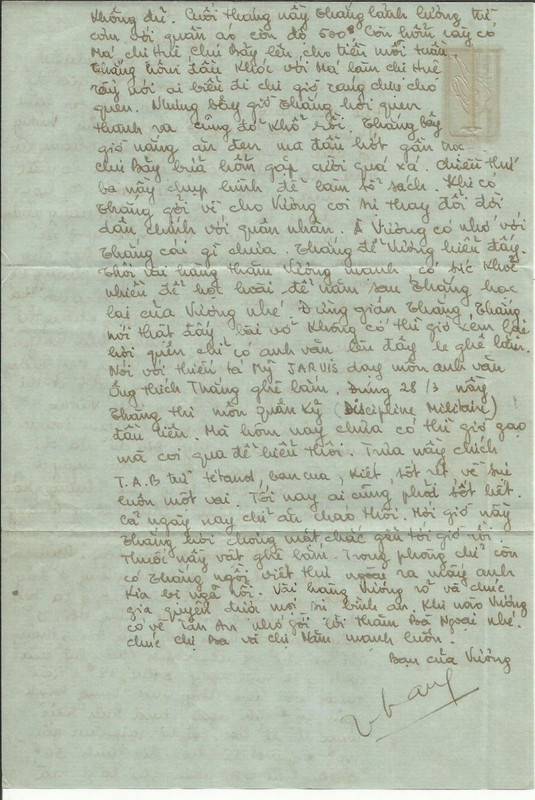 không đủ. Cuối tháng này Thắng lãnh lương trừ
cơm với quần áo còn độ 500đ. Còn hôm rày có
Má chị Huê chú Bảy lên cho tiền mỗi tuần
Thắng hôm đầu khóc với Má làm chị Huê
rầy nói ai biểu đi chi giờ ráng chịu cho
quen. Nhưng bây giờ Thắng hơi quen
thành ra cũng đỡ khổ rồi. Thắng bây
giờ nắng ăn đen mà đầu hớt gần trọc
chú Bảy bữa hôm gặp cười quá xá. Chiều thứ
ba này chụp hình để làm sổ sách. Khi có
Thắng gởi về cho Vương coi sự thay đổi đời
dân chính với quân nhân. À Vương có nhớ với
Thắng cái gì chưa. Thắng để Vương hiểu đấy.
Thôi vài hàng thăm Vương mạnh có sức khỏe
nhiều để học hoài để năm sau Thắng học
lại của Vương nhé. Đừng giận Thắng. Thắng
nói thật đấy bài vở không có thì giờ xem lại
hơi quên chỉ có anh văn lên đây le ghê lắm.
Nói với thiếu tá Mỹ JARVIS dạy môn anh văn
Ông thích Thắng ghê lắm. Đúng 28/3 này
Thắng thi môn quân kỷ (Discipline Militair)
đầu tiên. Mà hôm nay chưa có thì giờ gạo
mà coi qua để hiểu thôi. Trưa này chích
T.A.B trừ tétanos, ban cua, kiết, sốt rét về sưng
luôn một vai. Tối nay ai cũng phát sốt hết.
Cả ngày nay chỉ ăn cháo thôi. Mới giờ này
Thắng hơi chóng mặt chắc gần tới giờ rồi.
Thuốc này vật ghê lắm. Trong phòng chỉ còn
có Thắng ngồi viết thư ngoài ra mấy anh
kia bị ngã rồi. Vài hàng Vương rõ và chúc
gia quyến dưới mọi sự bình an. Khi nào Vương
có về Tân An nhớ gởi lời thăm Bà Ngoại nhé.
chúc chị Ba và chị Năm mạnh luôn.
Bạn của Vương
Thắng